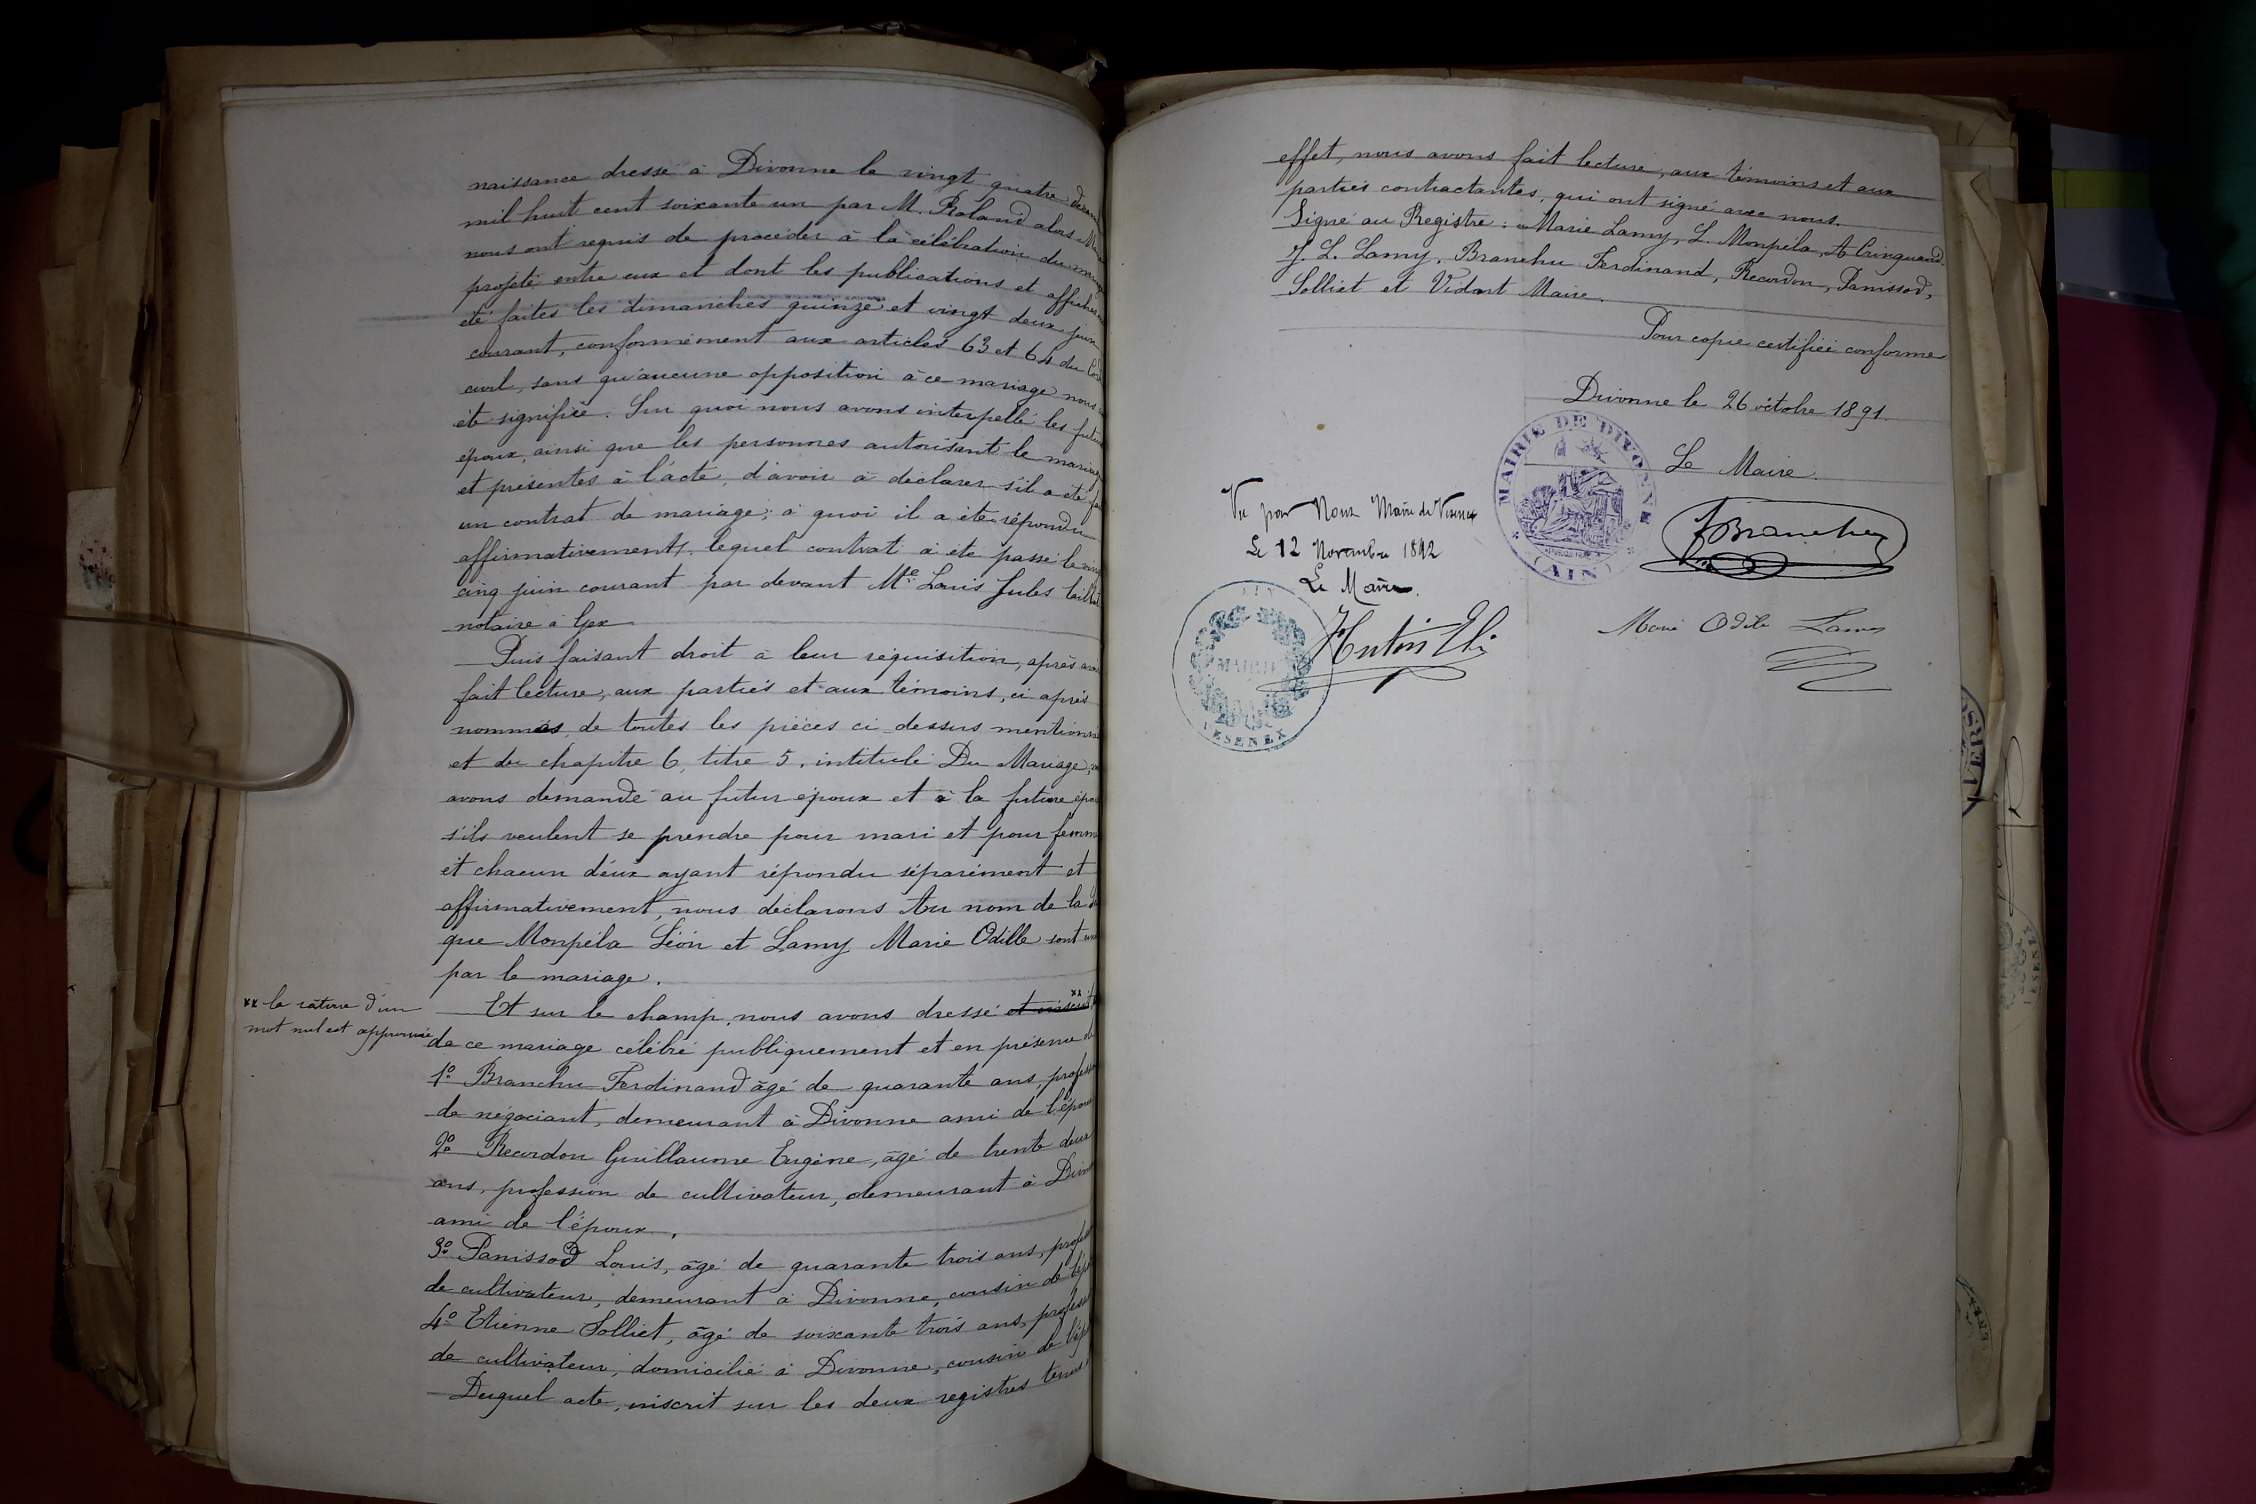 naissance dressé à Divonne le vingt quatre
mil huit cent soixante un par M. Roland alors
nous ont requis de procéder à la célébration du
projeté entre eux et dont les publications et affiches
été faites les dimanches quinze et vingt deux juin
courant, conformément aux articles 63 et 64 du Code
civil, sans qu'aucune opposition à ce mariage nous
été signifiée. Sur quoi nous avons interpellé les futurs
époux, ainsi que les personnes autorisant le mariage
et présentes à l'acte, d'avoir à déclarer s'il a été
un contrat de mariage; à quoi il a été répondu
affirmativement, lequel contrat a été passé le
cinq juin courant par devant Me Louis Jules
notaire à Gex
Puis faisant droit à leur réquisition, après
fait lecture, aux parties et aux témoins, ci après
nommés, de toutes les pièces ci-dessus
et du chapitre 6, titre 5, intitulé Du Mariage,
avons demandé au futur époux et à la future
s'ils veulent se prendre pour mari et pour
et chacun d'eux ayant répondu séparément et
affirmativement, nous déclarons Au nom de la
que Monpéla Léon et Lamy Marie Odille sont
par le mariage.
Et sur le champ, nous avons dressé et inscrit **
** la rature d'un
mot nul est approuvée
de ce mariage célébré publiquement et en présence
1º Branchu Ferdinand âgé de quarante ans,
de négociant, demeurant à Divonne ami de
2º Recordon Guillaume Eugène, âgé de trente deux
ans, profession de cultivateur, demeurant à
ami de l'époux.
3º Panissod Louis, âgé de quarante trois ans,
de cultivateur, demeurant à Divonne, cousin de
4º Etienne Solliet, âgé de soixante trois ans,
de cultivateur, domicilié à Divonne, cousin de
Duquel acte, inscrit sur les deux registres tenus
effet, nous avons fait lecture, aux témoins et aux
parties contractantes, qui ont signé avec nous.
Signé au Registre: Marie Lamy, L. Monpéla, A
J. L. Lamy, Branchu Ferdinand, Recordon, Panissod,
Solliet et Vidart Maire.
Pour copie certifiée conforme
Divonne le 26 octobre 1891.
Le Maire.
MAIRIE DE DIVONNE
(AIN)
Branchu
Vu par Nous Maire de Vesenex
Le 12 Novembre 1892
Le Maire.
MAIRIE
VESENEX
Marie Odile Lamy